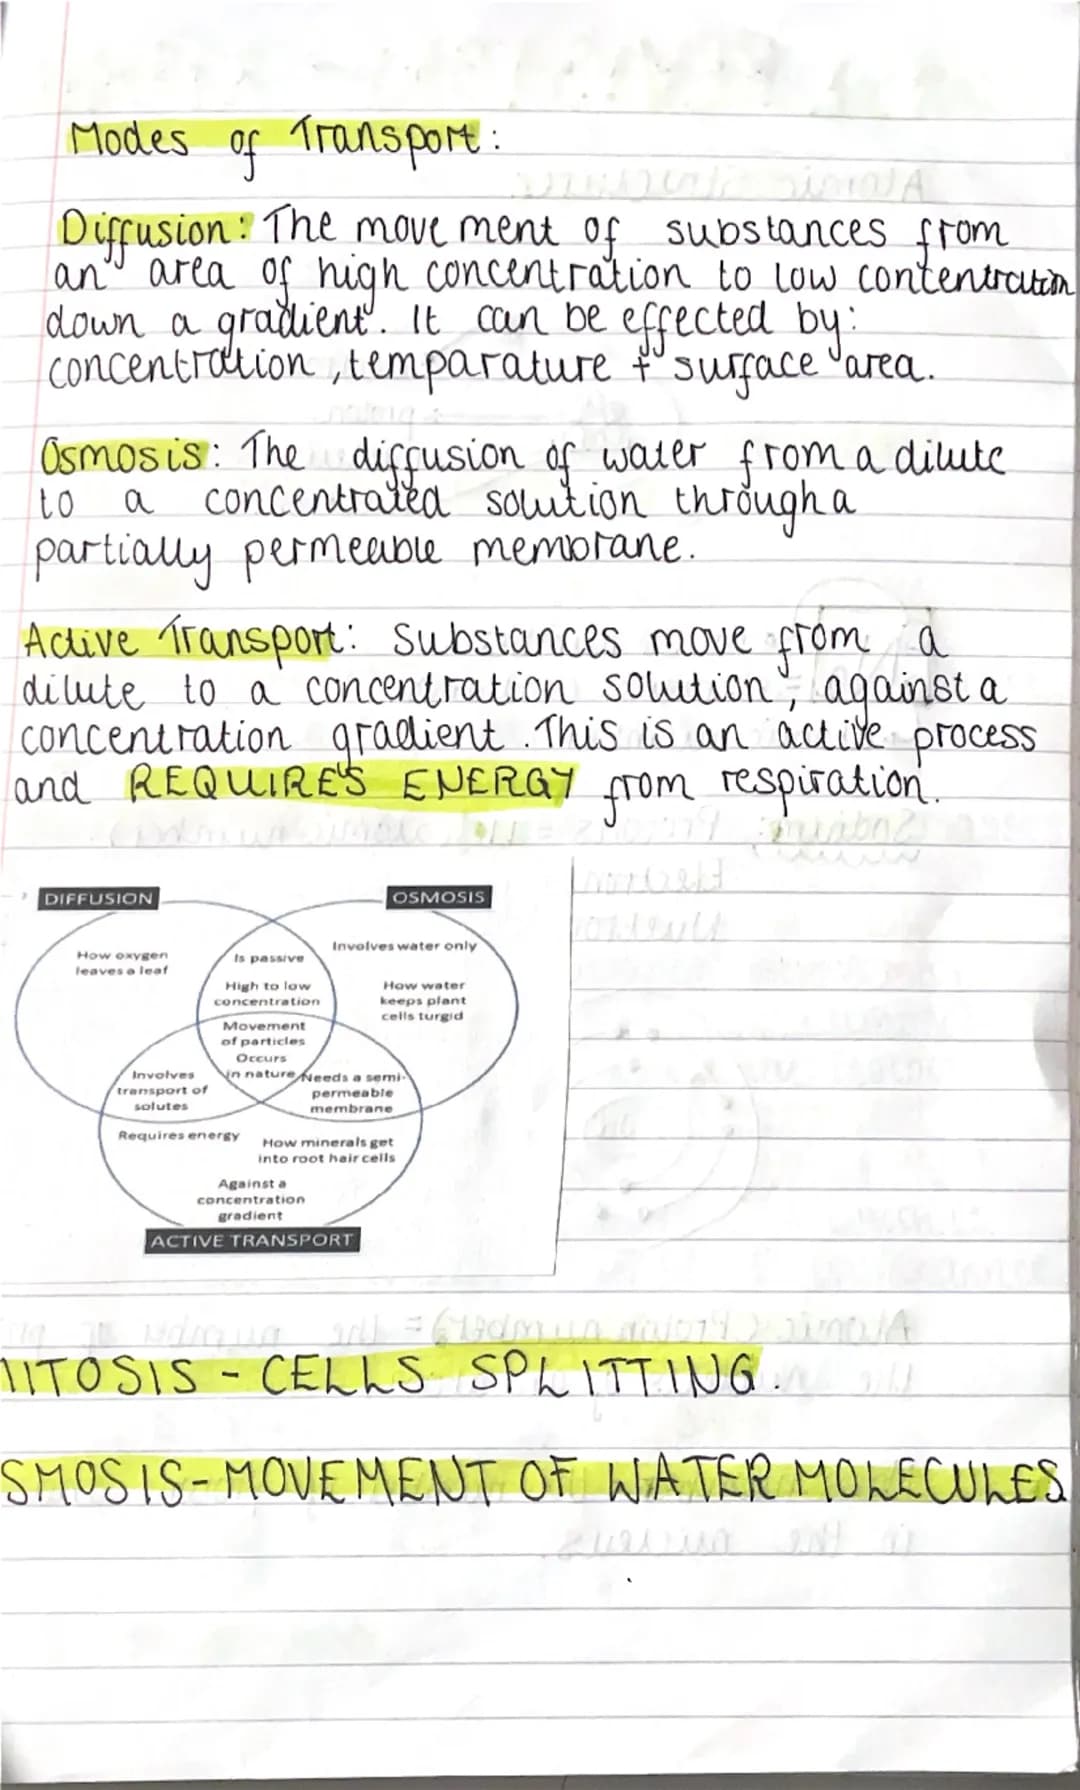 Modes of Transport:
Diffusion: The movement of substances from
an area of high concentration to low contentration
down a gradient. It can be effected by:
concentration, temparature + surface area.
Osmosis: The diffusion of water from a dilute
to a concentrated solution through a
partially permeable membrane.
Active Transport: Substances move from a
dilute to a concentration solution, against a
concentration gradient. This is an active process
and REQUIRES ENERGY from respiration.
DIFFUSION
OSMOSIS
How oxygen
leaves a leaf
Is passive
High to low
concentration
Involves water only
How water
keeps plant
cells turgid
Movement
of particles
Occurs
in nature
Involves
transport of
solutes
Needs a semi-
permeable
membrane
Requires energy
How minerals get
into root hair cells
Against a
concentration
gradient
ACTIVE TRANSPORT
MITOSIS - CELLS SPLITTING.
SMOSIS-MOVEMENT OF WATER MOLECULES